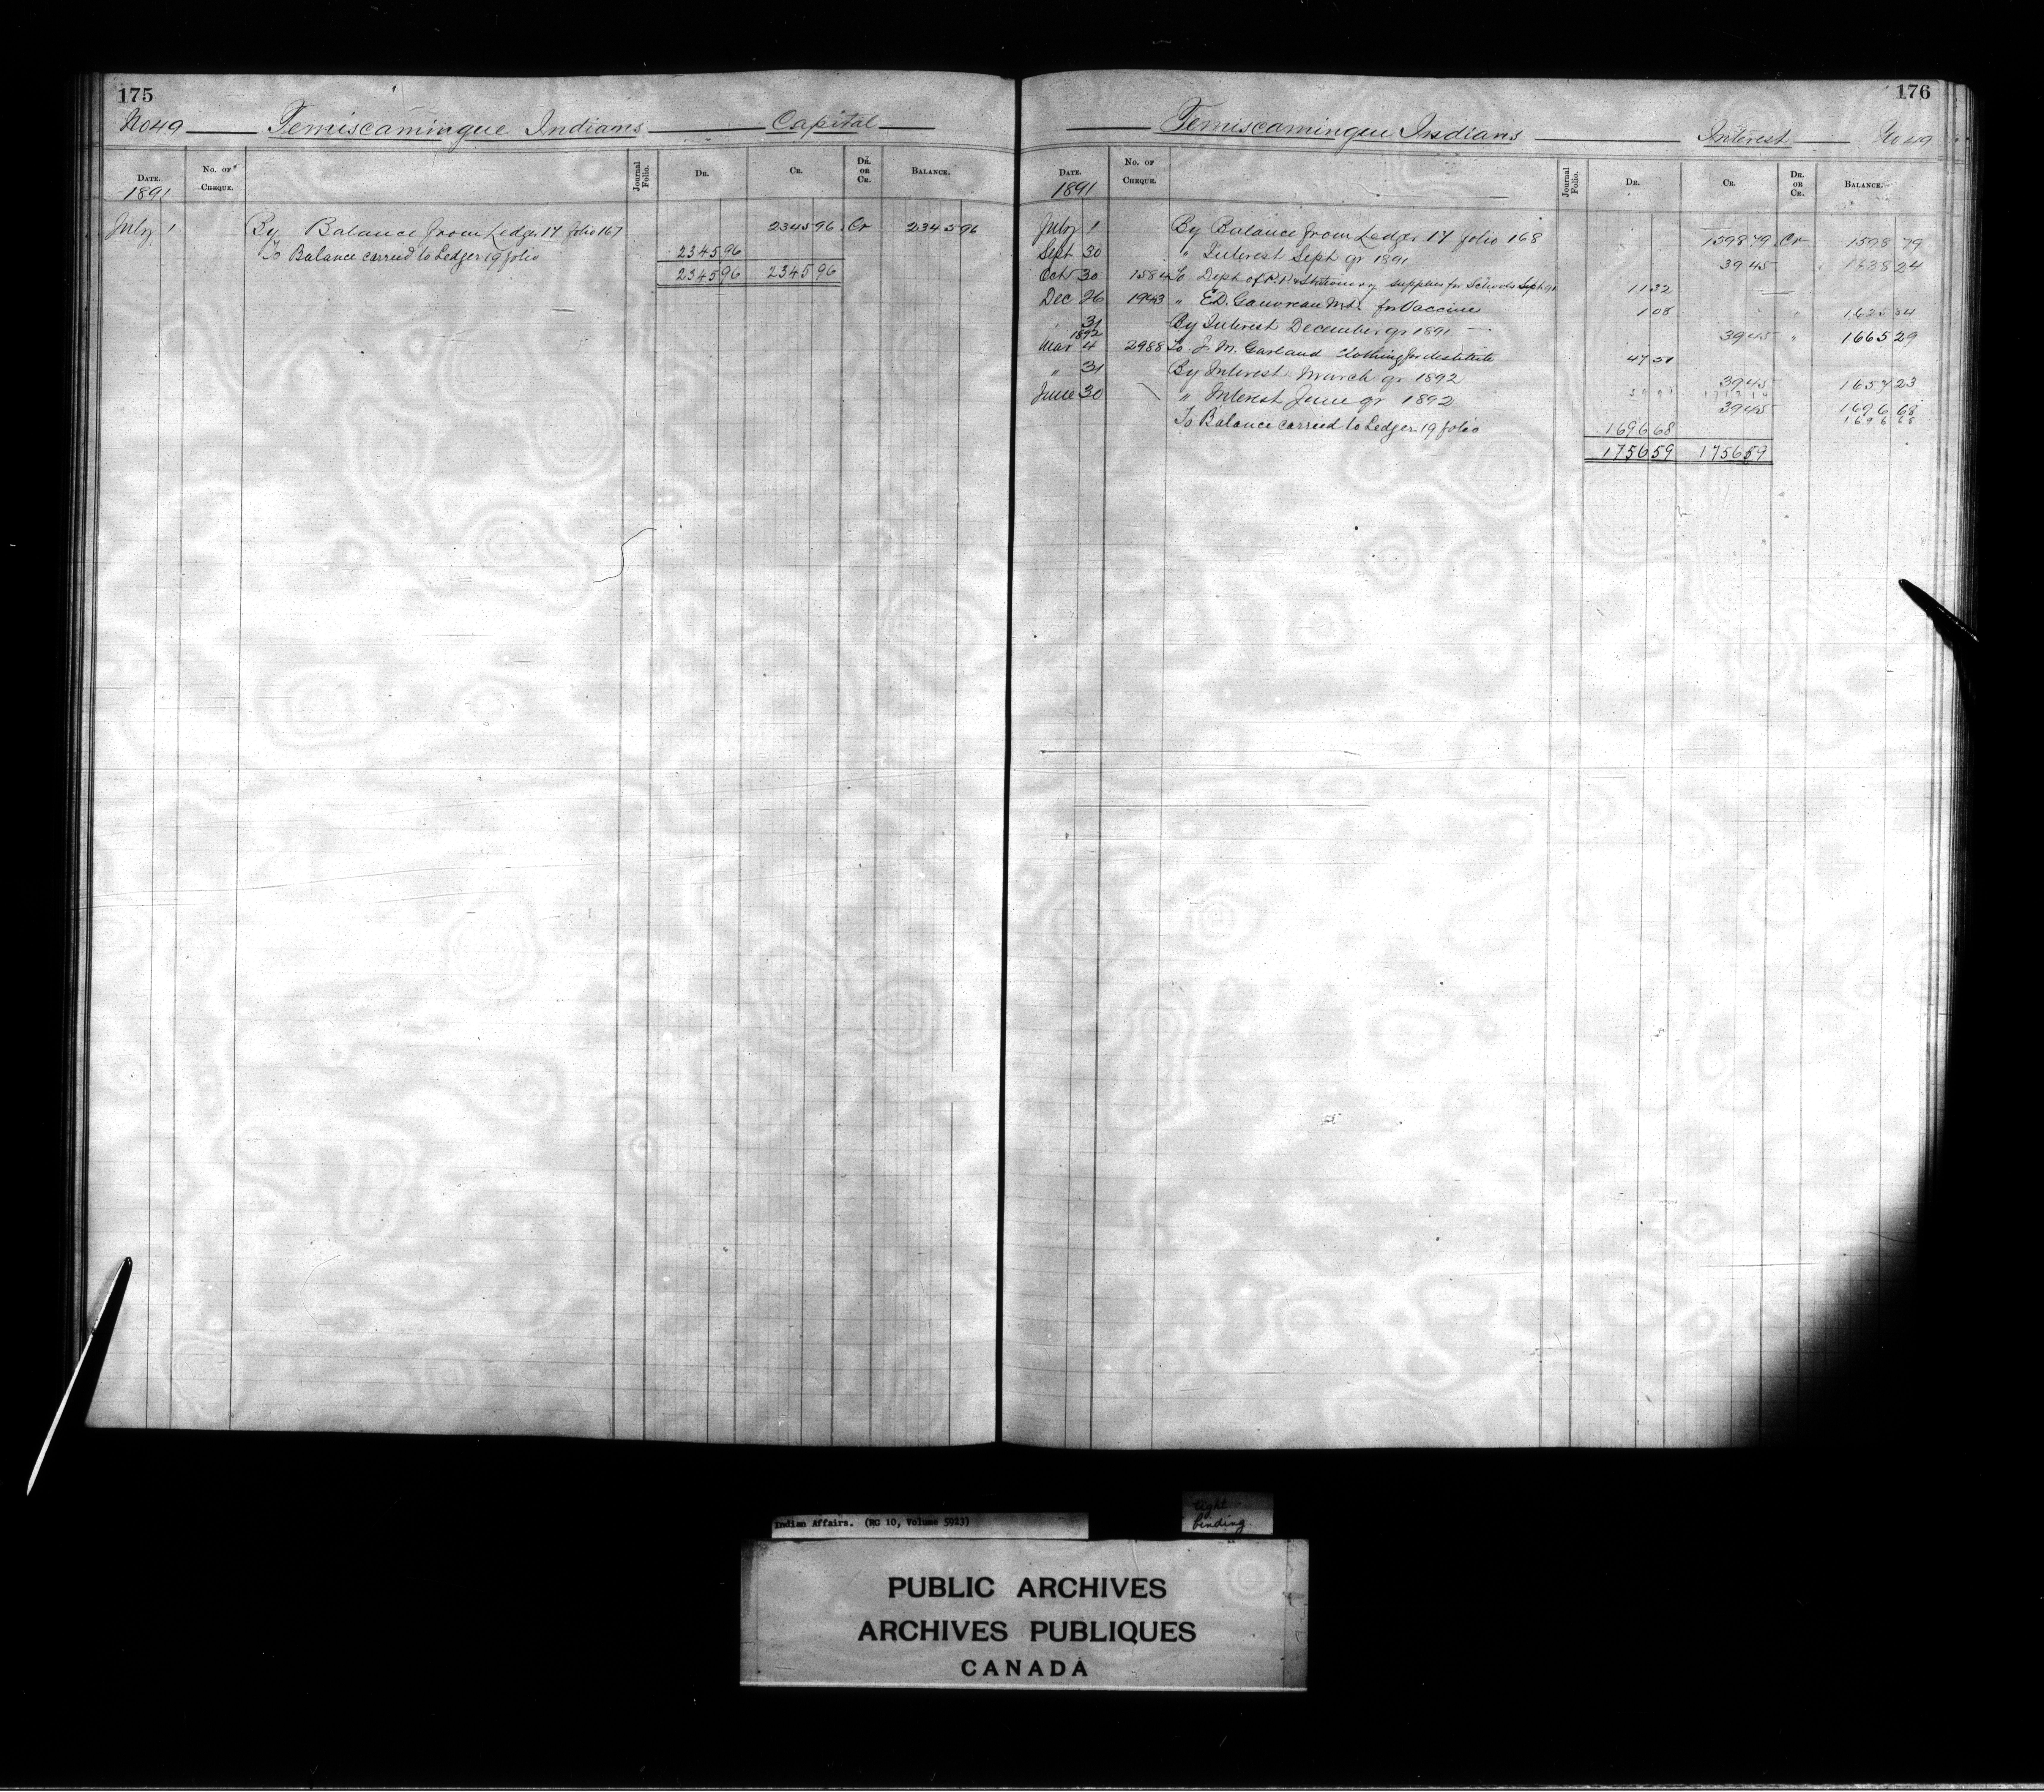 175
No 49 Temiscamingue Indians Capital
DATE. No. OF CHEQUE. Journal Folio. DR. CR. DR. OR CR. BALANCE.
1891
July 1 By Balance from Ledger 17 folio 167 2345 96 Cr 2345 96
To Balance carried to Ledger 19 folio 2345 96
2345 96 2345 96
176
Temiscamingue Indians Interest No 49
DATE. No. OF CHEQUE. Journal Folio. DR. CR. DR. OR CR. BALANCE.
1891
July 1 By Balance from Ledger 17 folio 168 1598 79 Cr 1598 79
Sept 30 " Interest Sept qr 1891 39 45 1638 24
Oct 30 1584 To Dept of P. P. & Stationery supplies for Schools Sept qr 11 32
Dec 26 1943 " E.D. Gauvreau M.d. for Vaccine 1 08 1625 84
" 31 By Interest December qr 1891 39 45 " 1665 29
1892
Mar 4 2988 To J. M. Garland clothing for destitute 47 51
" 31 By Interest March qr 1892 39 45 1657 23
June 30 " Interest June qr 1892 39 45 1696 68
1696 68
To Balance carried to Ledger 19 folio 1696 68
1756 59 1756 59
Indian Affairs. (RG 10, Volume 5923)
tight
binding
PUBLIC ARCHIVES
ARCHIVES PUBLIQUES
CANADA